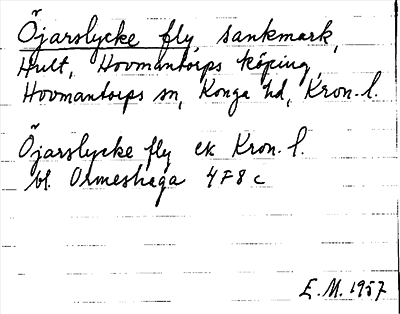 Öjarslycke fly sankmark,
Hult, Hovmantorps köping,
Hovmantorps sn, Konga hd, Kron. l.
Öjarslycke fly ek Kron. l.
bl. Ormeshaga 4F8c
E. M. 1957